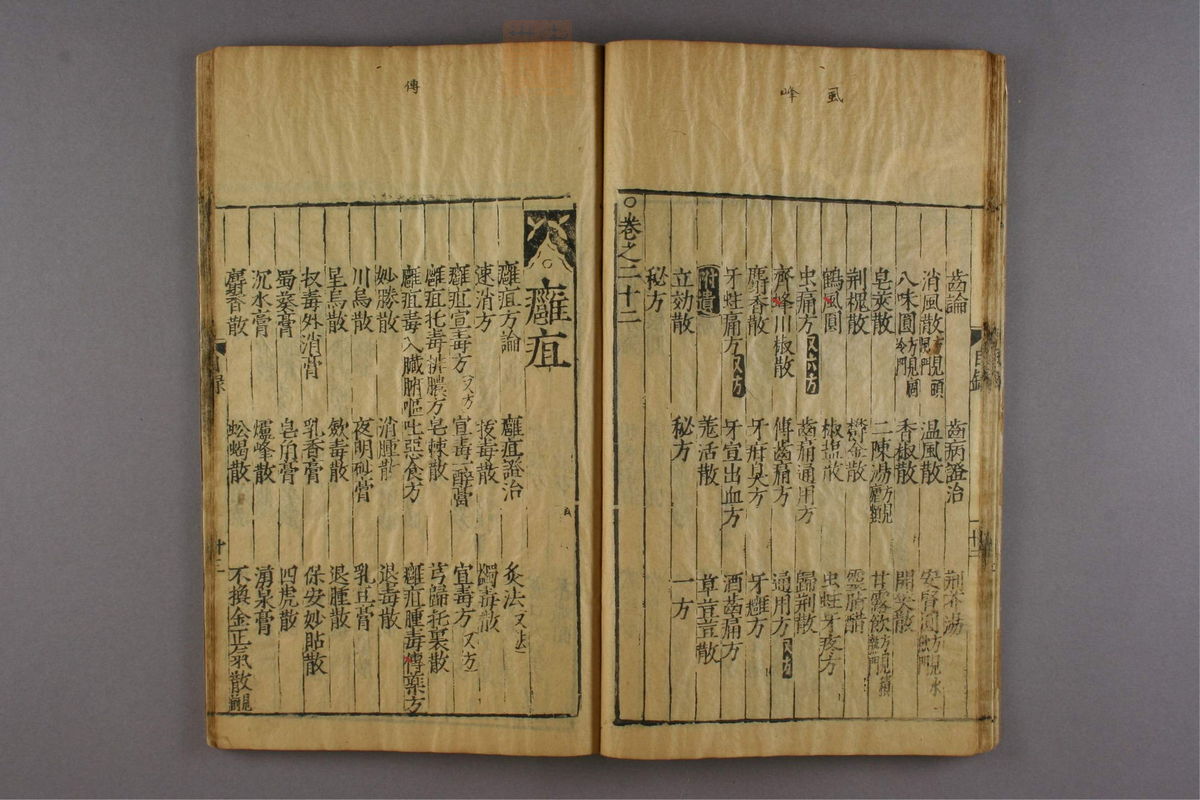 虱　峰
齒論　齒病證治　荊芥湯
消風散方見頭風門　温風散　安腎圓方見水飲門
八味圓方見痼冷門　香椒散　開笑散
皂莢散　二陳湯方見痰類　甘露飲方見積熱門
荊槐散　欝金散　雲膏醋
鶴風圓　椒塩散　虫蛀牙疼方
虫痛方又六方　齒痛通用方　歸荊散
齊峰川椒散　傅齒痛方　通用方又方
麝香散　牙疳臭方　牙癰方
牙蛀痛方又方　牙宣出血方　酒齒痛方
附遺
立効散　羗活散　草荳荳散
秘方　秘方　一方
○卷之二十二
目錄
十二
傳
○癰疽
癰疽方論　癰疽證治　灸法又法
速消方　拔毒散　蠲毒散
癰疽宣毒方又方　宣毒一醉膏　宣毒方又方
癰疽托毒排膿方　皂棘散　芎歸托裏散
癰疽毒入臟腑嘔吐惡食方　癰疽腫毒傅藥方
妙勝散　消腫散　退毒散
川烏散　夜明砂膏　乳豆膏
星烏散　斂毒散　退腫散
拔毒外消膏　乳香膏　保安妙貼散
蜀葵膏　皂角膏　四虎散
沉水膏　爐峰散　湧泉膏
麝香散　蜈蝎散　不換金正氣散
目録
十三